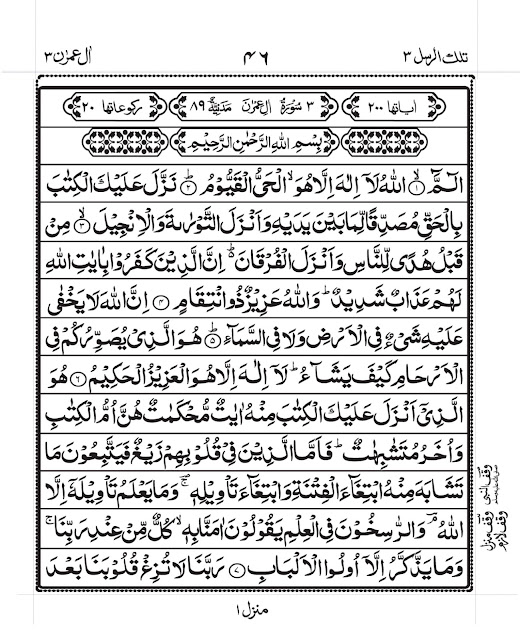 تلك الرسل ٣ ٤٦ اٰل عمرٰن ٣
اٰیاتها ٢٠٠ ٣ سُوْرَةُ اٰلِ عِمْرٰنَ مَدَنِیَّةٌ ٨٩ رکوعاتها ٢٠
بِسْمِ اللهِ الرَّحْمٰنِ الرَّحِیْمِ
الٓـمّٓ ۙ﴿١﴾ اللهُ لَاۤ اِلٰهَ اِلَّا هُوَ ۙ الْحَیُّ الْقَیُّوْمُ ؕ﴿٢﴾ نَزَّلَ عَلَیْكَ الْكِتٰبَ
بِالْحَقِّ مُصَدِّقًا لِّمَا بَیْنَ یَدَیْهِ وَ اَنْزَلَ التَّوْرٰىةَ وَ الْاِنْجِیْلَ ۙ﴿٣﴾ مِنْ
قَبْلُ هُدًی لِّلنَّاسِ وَ اَنْزَلَ الْفُرْقَانَ ؕ۬ اِنَّ الَّذِیْنَ كَفَرُوْا بِاٰیٰتِ اللهِ
لَهُمْ عَذَابٌ شَدِیْدٌ ؕ وَ اللهُ عَزِیْزٌ ذُو انْتِقَامٍ ﴿٤﴾ اِنَّ اللهَ لَا یَخْفٰی
عَلَیْهِ شَیْءٌ فِی الْاَرْضِ وَ لَا فِی السَّمَآءِ ؕ﴿٥﴾ هُوَ الَّذِیْ یُصَوِّرُكُمْ فِی
الْاَرْحَامِ كَیْفَ یَشَآءُ ؕ لَاۤ اِلٰهَ اِلَّا هُوَ الْعَزِیْزُ الْحَكِیْمُ ﴿٦﴾ هُوَ
الَّذِیْۤ اَنْزَلَ عَلَیْكَ الْكِتٰبَ مِنْهُ اٰیٰتٌ مُّحْكَمٰتٌ هُنَّ اُمُّ الْكِتٰبِ
وَ اُخَرُ مُتَشٰبِهٰتٌ ؕ فَاَمَّا الَّذِیْنَ فِیْ قُلُوْبِهِمْ زَیْغٌ فَیَتَّبِعُوْنَ مَا
تَشَابَهَ مِنْهُ ابْتِغَآءَ الْفِتْنَةِ وَ ابْتِغَآءَ تَاْوِیْلِهٖ ۚ وَ مَا یَعْلَمُ تَاْوِیْلَهٗۤ اِلَّا
اللهُ ۘ وَ الرّٰسِخُوْنَ فِی الْعِلْمِ یَقُوْلُوْنَ اٰمَنَّا بِهٖ ۙ كُلٌّ مِّنْ عِنْدِ رَبِّنَا ۚ
وَ مَا یَذَّكَّرُ اِلَّاۤ اُولُوا الْاَلْبَابِ ﴿٧﴾ رَبَّنَا لَا تُزِغْ قُلُوْبَنَا بَعْدَ
وقف النبی
وقف لازم
وقف منزل
منزل ١